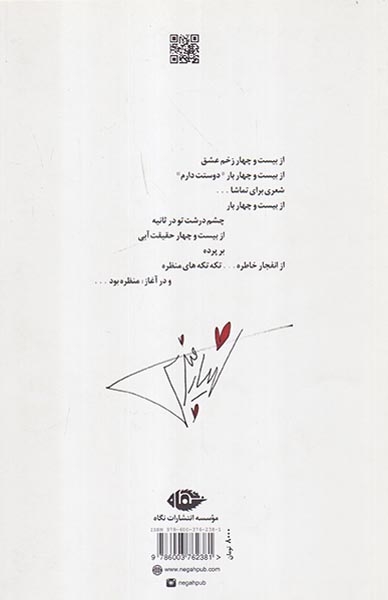 از بیست و چهار زخم عشق
از بیست و چهار بار "دوستت دارم"
شعری برای تماشا ...
از بیست و چهار بار
چشم درشت تو در ثانیه
از بیست و چهار حقیقت آبی
بر پرده
از انفجار خاطره ... تکه تکه های منظره
و در آغاز، منظره بود ...
نگاه
مؤسسه انتشارات نگاه
ISBN 978-600-376-238-1
9 786003 762381
۸۰۰۰ تومان
www.negahpub.com
negahpub